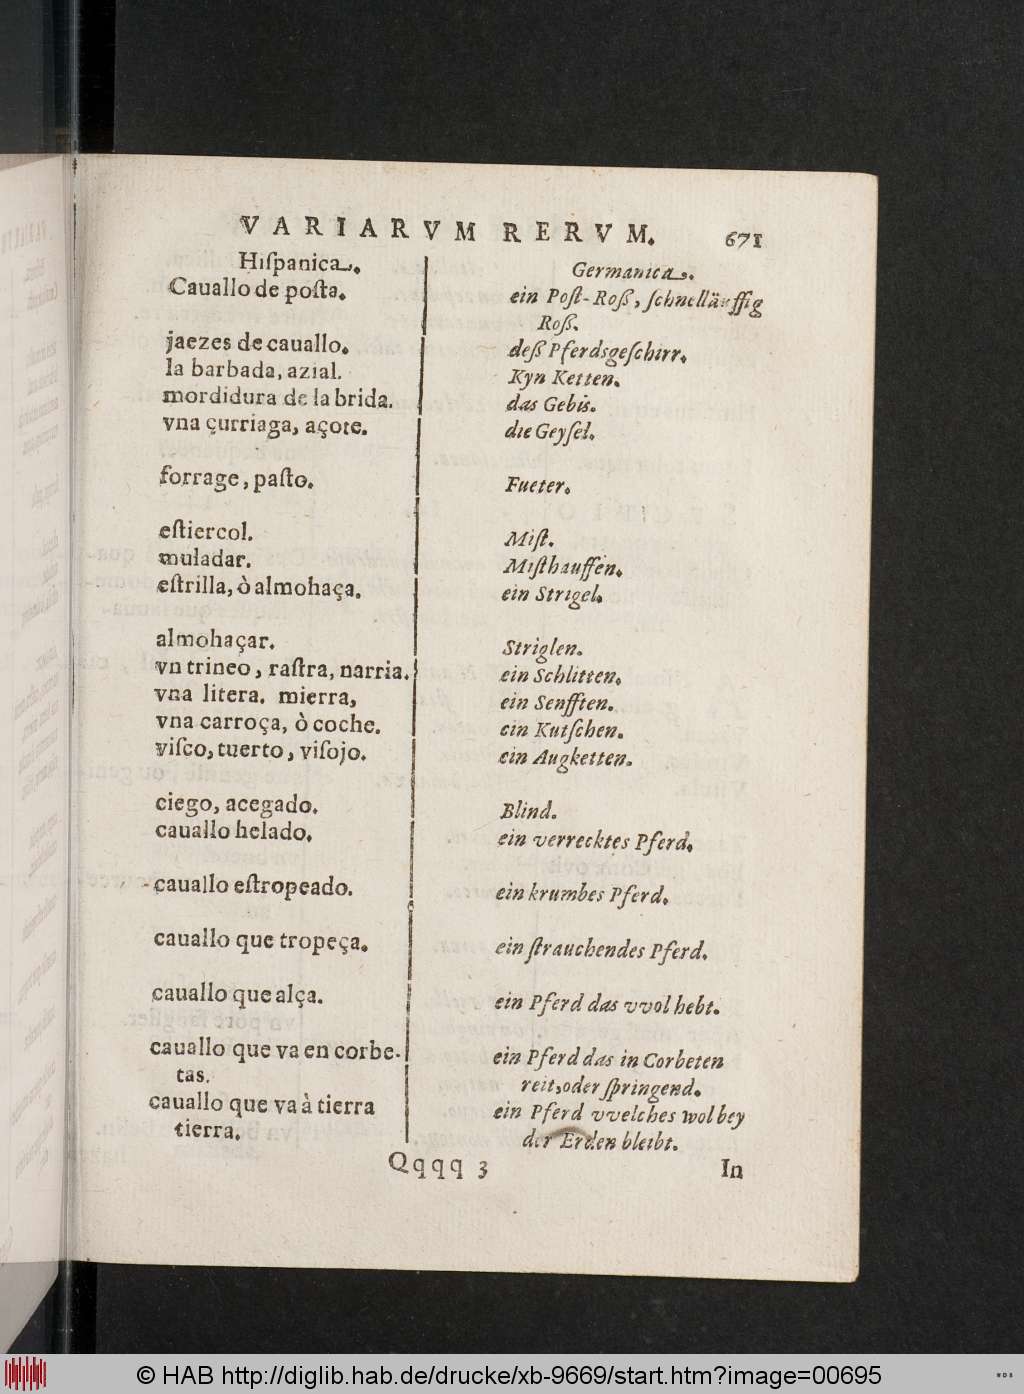 VARIARVM RERVM. 671
Hiſpanica.
Cauallo de poſta.
jaezes de cauallo.
la barbada, azial.
mordidura de la brida.
vna çurriaga, açote.
forrage, paſto.
eſtiercol.
muladar.
eſtrilla, ò almohaça.
almohaçar.
vn trineo, raſtra, narria.
vna litera. mierra,
vna carroça, ò coche.
viſco, tuerto, viſojo.
ciego, acegado.
cauallo helado.
cauallo eſtropeado.
cauallo que tropeça.
cauallo que alça.
cauallo que va en corbe-
tas.
cauallo que va à tierra
tierra.
Germanica.
ein Poſt-Roß, ſchnelläuffig
Roß.
deß Pferdsgeſchirr.
Kyn Ketten.
das Gebis.
die Geyſel.
Fueter.
Miſt.
Miſthauffen.
ein Strigel.
Striglen.
ein Schlitten.
ein Senfften.
ein Kutſchen.
ein Augketten.
Blind.
ein verrecktes Pferd.
ein krumbes Pferd.
ein ſtrauchendes Pferd.
ein Pferd das vvol hebt.
ein Pferd das in Corbeten
reit, oder ſpringend.
ein Pferd vvelches wol bey
der Erden bleibt.
Qqqq 3 In
© HAB http://diglib.hab.de/drucke/xb-9669/start.htm?image=00695